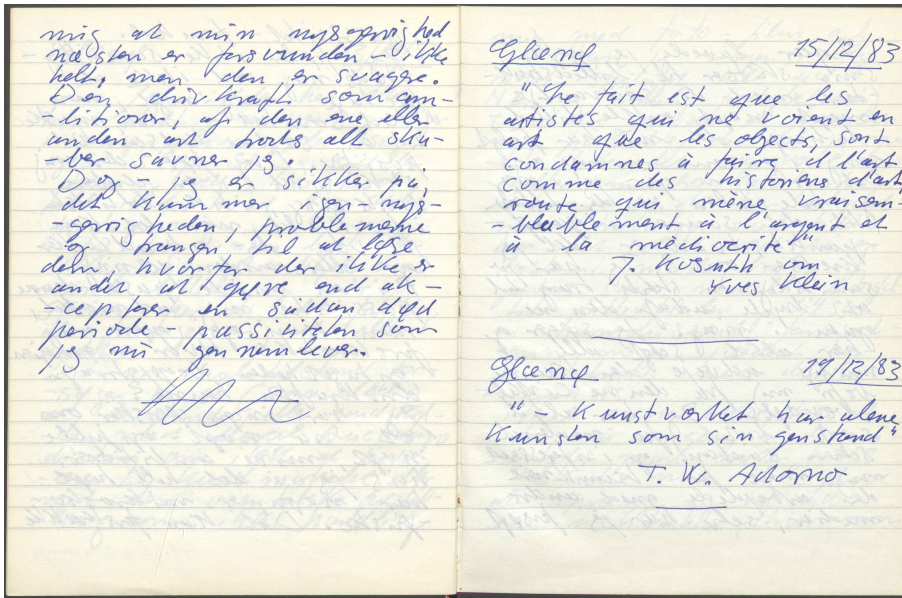 mig at min nysgerrighed
næsten er forsvunden - ikke
helt, men den er svagere.
Den drivkraft som am-
-litioner, af den ene eller
anden art trods alt ska-
-ber savner jeg.
Dog - jeg er sikker på,
det kommer igen - nys-
-gerrigheden, problemerne
og trangen til at løse
dem, hvorfor der ikke er
andet at gøre end ak-
-ceptere en sådan død
periode - passiviteten som
jeg nu gennemlever.
Gland 15/12/83
"Le fait est que les
artistes qui ne voient en
art que les objects, sont
condamnes à faire d l'art
comme des historiens d'art,
route qui mène vraisem-
-blablement à l'argent et
à la médiocrité"
J. Kosuth om
Yves Klein
Gland 19/12/83
" - Kunstværket har alene
Kunsten som sin genstand"
T. W. Adorno